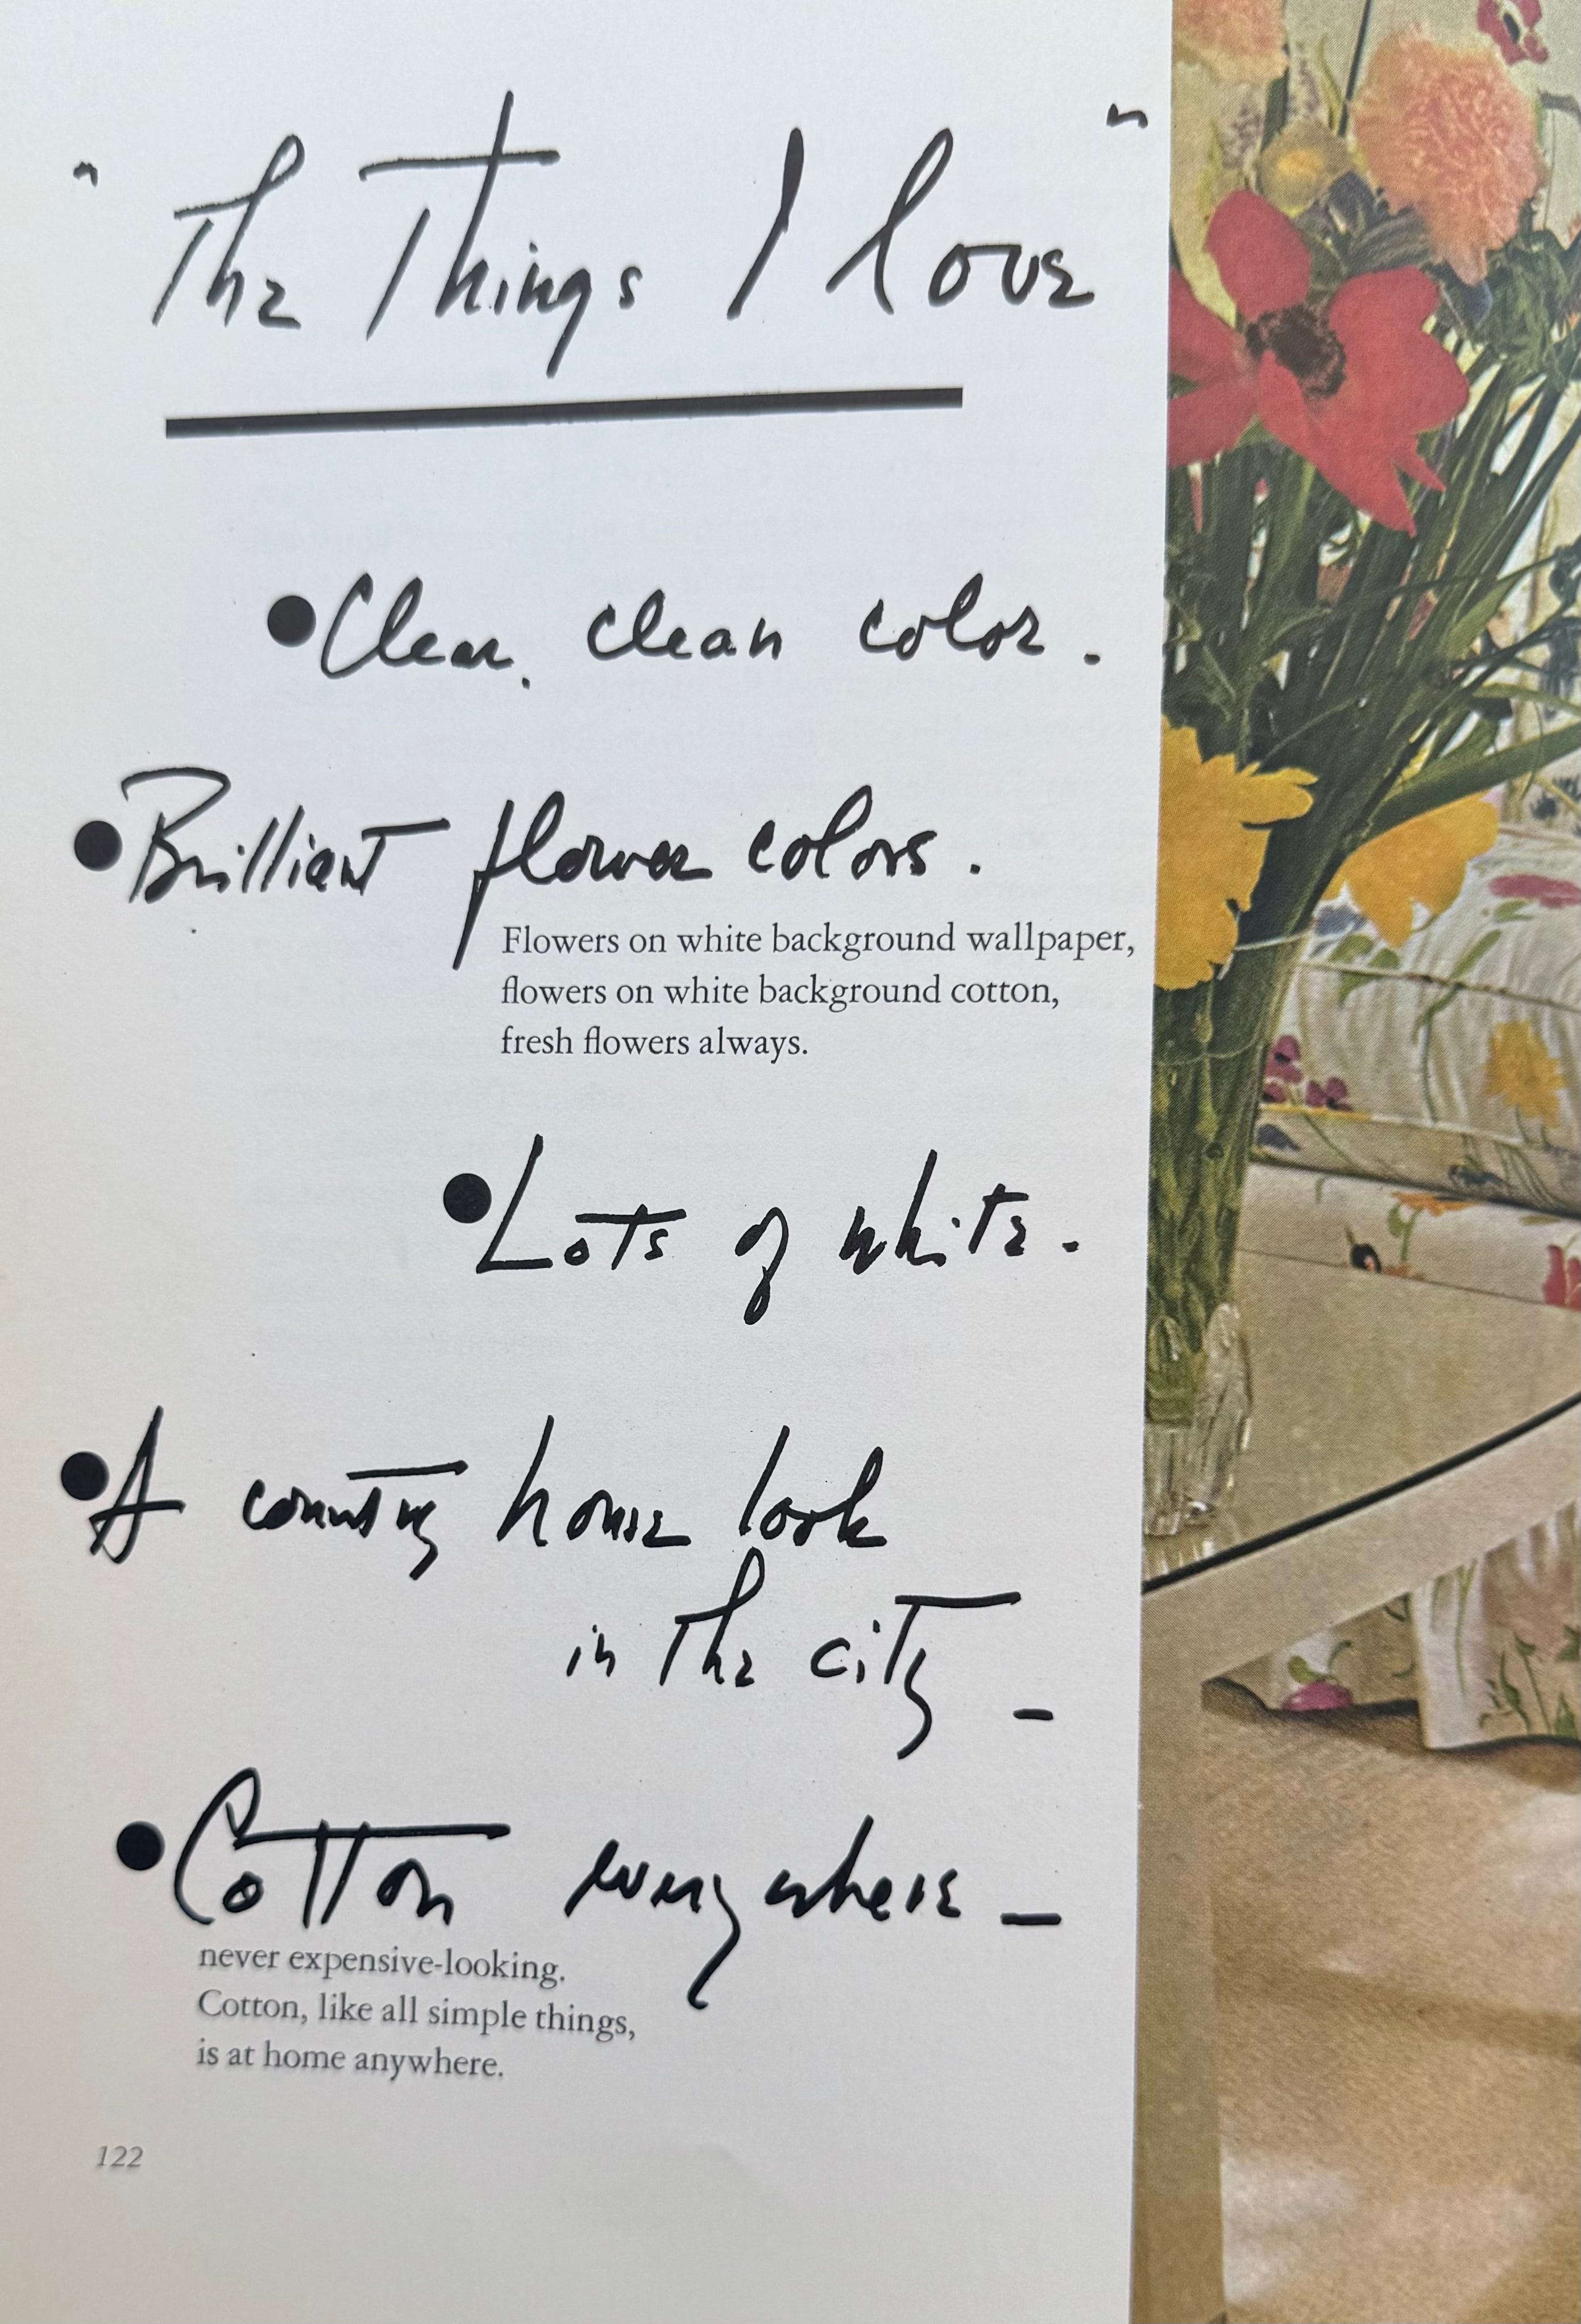 "The Things I love"
• Clear, clean color.
• Brilliant flower colors.
Flowers on white background wallpaper,
flowers on white background cotton,
fresh flowers always.
• Lots of white.
• A country house look
in the city –
• Cotton everywhere –
never expensive-looking.
Cotton, like all simple things,
is at home anywhere.
122